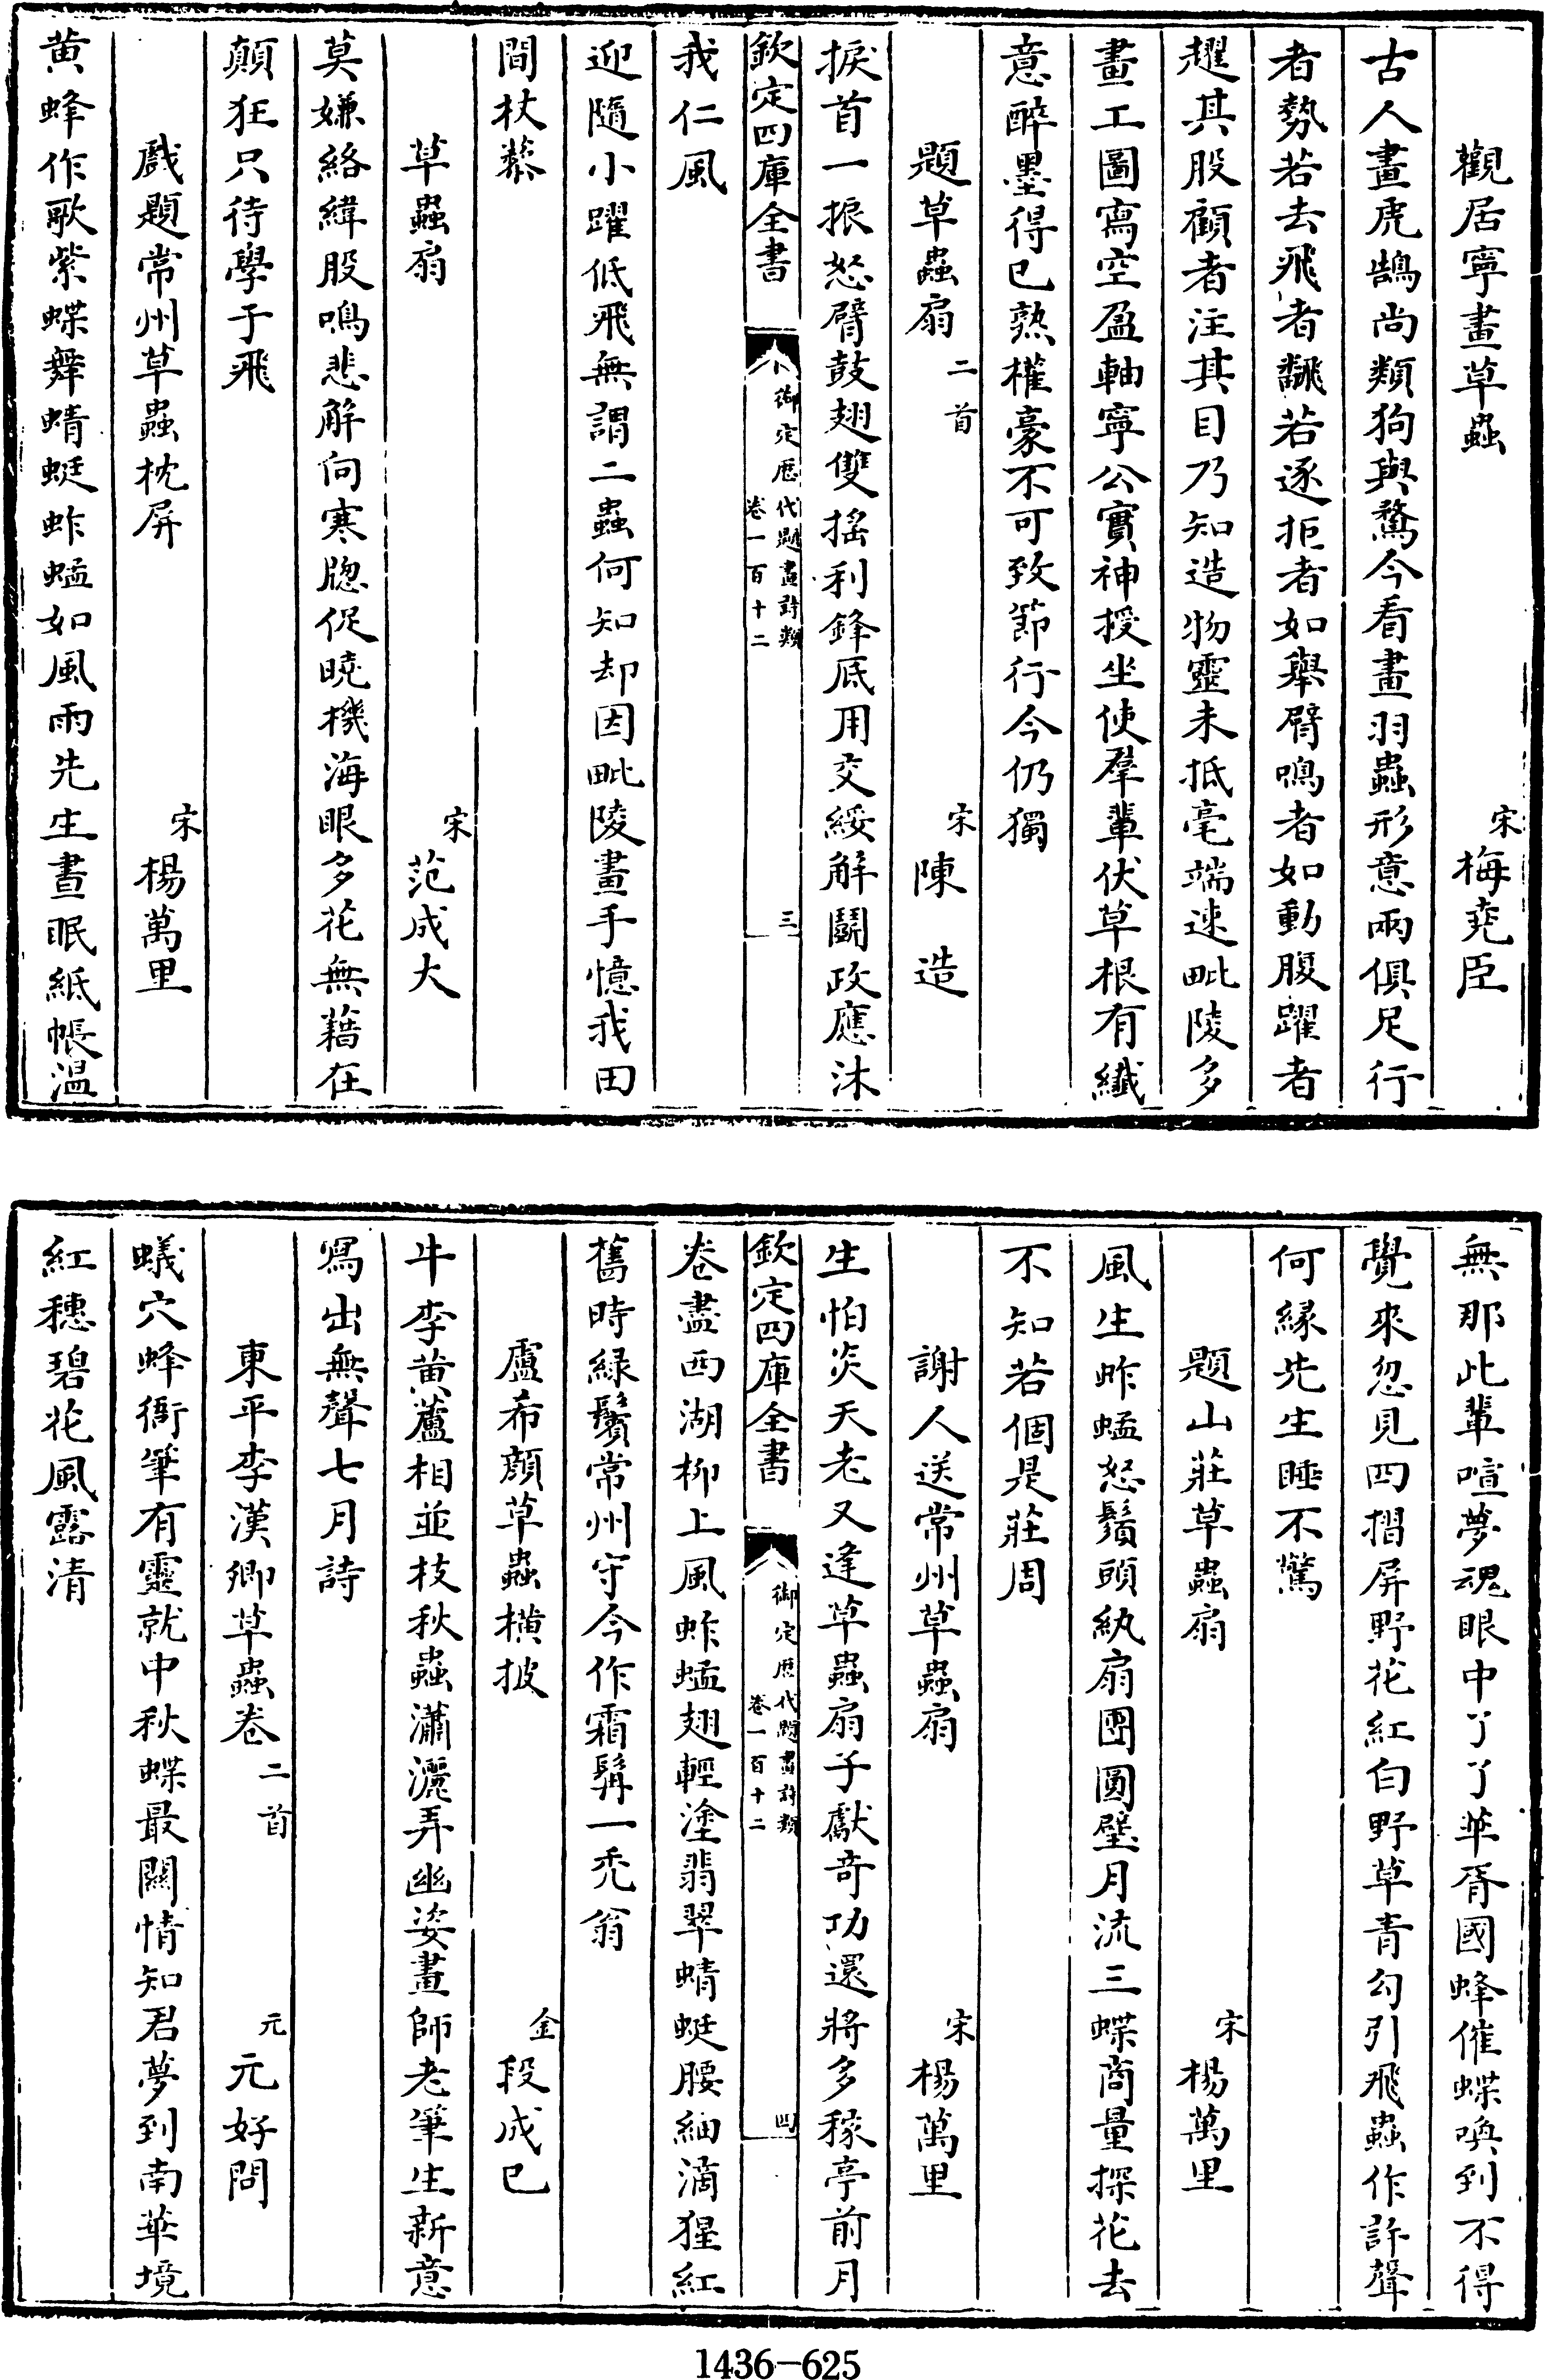 觀居寧畫草蟲 宋 梅堯臣
古人畫虎鵠尚類狗與鶩今看畫羽蟲形意兩俱足行
者勢若去飛者飜若逐拒者如舉臂鳴者如動腹躍者
趯其股顧者注其目乃知造物靈未抵毫端速毗陵多
畫工圖寫空盈軸寧公實神授坐使羣輩伏草根有纖
意醉墨得已熟權豪不可致節行今仍獨
題草蟲扇 二首 宋 陳造
捩首一振怒臂鼓翅雙搖利鋒厎用交綏解鬬政應沐
欽定四庫全書 御定歴代題畫詩類 卷一百十二 三
我仁風
迎隨小躍低飛無謂二蟲何知却因毗陵畫手憶我田
間杖藜
草蟲扇 宋 范成大
莫嫌絡緯股鳴悲解向寒牕促曉機海眼多花無藉在
顛狂只待學于飛
戲題常州草蟲枕屏 宋 楊萬里
黄蜂作歌紫蝶舞蜻蜓蚱蜢如風雨先生晝眠紙帳温
無那此輩喧夢魂眼中了了華胥國蜂催蝶喚到不得
覺來忽見四摺屏野花紅白野草青勾引飛蟲作許聲
何緣先生睡不驚
題山莊草蟲扇 宋 楊萬里
風生蚱蜢怒鬚頭紈扇團圓璧月流三蝶商量探花去
不知若個是莊周
謝人送常州草蟲扇 宋 楊萬里
生怕炎天老又逢草蟲扇子獻奇功還將多稼亭前月
欽定四庫全書 御定歴代題畫詩類 卷一百十二 四
卷盡西湖柳上風蚱蜢翅輕塗翡翠蜻蜓腰細滴猩紅
舊時緑鬢常州守今作霜髯一禿翁
盧希顔草蟲横披 金 段成己
牛李黄蘆相並枝秋蟲瀟灑弄幽姿畫師老筆生新意
寫出無聲七月詩
東平李漢卿草蟲卷 二首 元 元好問
蟻穴蜂衙筆有靈就中秋蝶最關情知君夢到南華境
紅穗碧花風露清
1436-625